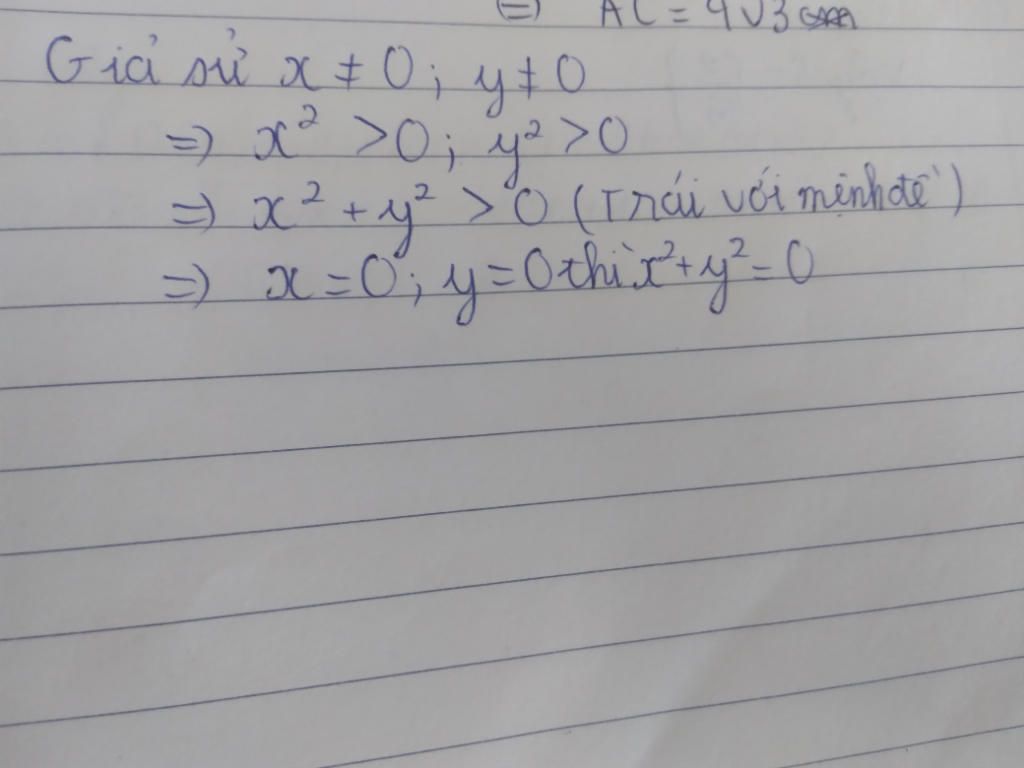 =) AC = 4√3 cm
Giả sử x ≠ 0 ; y ≠ 0
=) x² > 0 ; y² > 0
=) x² + y² > 0 (Trái với mệnh đề)
=) x = 0 ; y = 0 thì x² + y² = 0